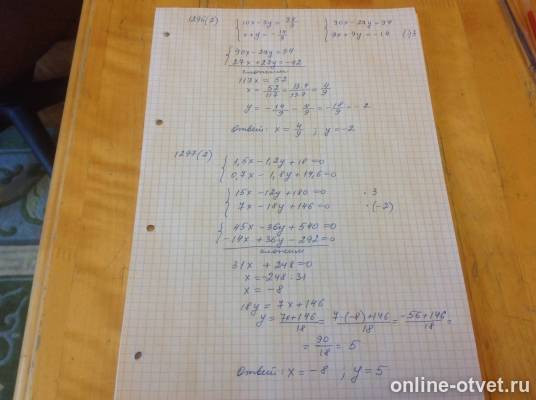 1296(2) { 10x - 3y = 38/3 { 90x - 27y = 94
{ x + y = -14/9 { 9x + 9y = -14 (·)3
{ 90x - 27y = 94
27x + 27y = -42
сложили
117x = 52
x = 52/117 = 13·4/13·9 = 4/9
y = -14/9 - 4/9 = -18/9 = -2
Ответ: x = 4/9 ; y = -2
1297(2) { 1,5x - 1,2y + 18 = 0
{ 0,7x - 1,8y + 14,6 = 0
{ 15x - 12y + 180 = 0 · 3
{ 7x - 18y + 146 = 0 · (-2)
{ 45x - 36y + 540 = 0
-14x + 36y - 292 = 0
сложили
31x + 248 = 0
x = -248 : 31
x = -8
18y = 7x + 146
y = 7x+146/18 = 7·(-8)+146/18 = -56+146/18 =
= 90/18 = 5
Ответ: x = -8 ; y = 5
online-otvet.ru